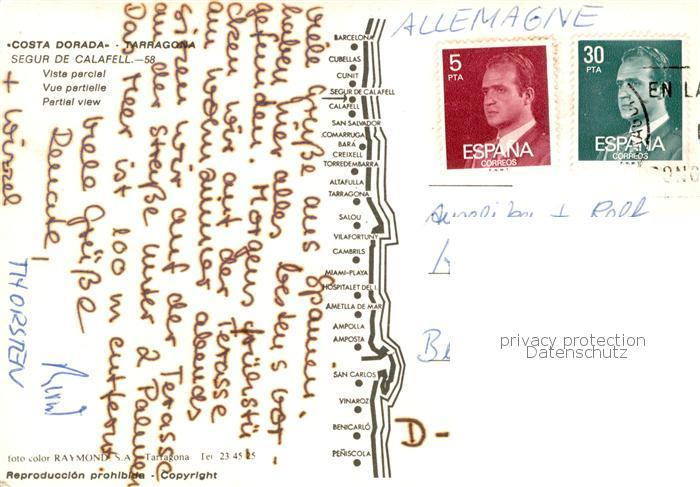 ALLEMAGNE
«COSTA DORADA» - TARRAGONA
SEGUR DE CALAFELL.—58
Vista parcial
Vue partielle
Partial view
BARCELONA
CUBELLAS
CUNIT
SEGUR DE CALAFELL
CALAFELL
SAN SALVADOR
COMARRUGA
BARÁ
CREIXELL
TORREDEMBARRA
ALTAFULLA
TARRAGONA
SALOU
VILAFORTUNY
CAMBRILS
MIAMI-PLAYA
HOSPITALET DEL I.
AMETLLA DE MAR
AMPOLLA
AMPOSTA
SAN CARLOS
VINAROZ
BENICARLÓ
PEÑISCOLA
Viele Grüße aus Spanien,
haben hier alles bestens vor-
gefunden. Morgens frühstü-
cken wir auf der Terasse
am Wohnzimmer abends
sitzen wir auf der Terasse
an der Straße unter 2 Palmen
Das Meer ist 100 m entfernt.
Viele Grüße
Renate,
+
THORSTEN
foto color RAYMOND S.A. Tarragona Tel 23 45 25
Reproducción prohibida - Copyright
5
PTA
ESPAÑA
CORREOS
30
PTA
ESPAÑA
CORREOS
EN LA
D -
privacy protection
Datenschutz